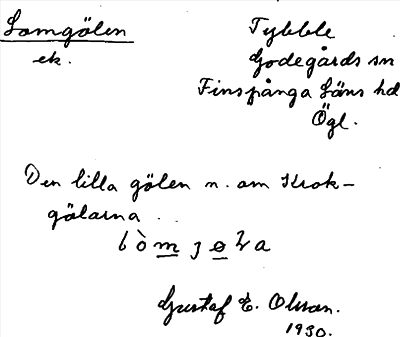 Lomgölen
ek.
Tybble
Godegårds sn
Finspånga Läns hd
Ögl.
Den lilla gölen n. om Krok-
gölarna . .
Gustaf E. Olsson.
1930.